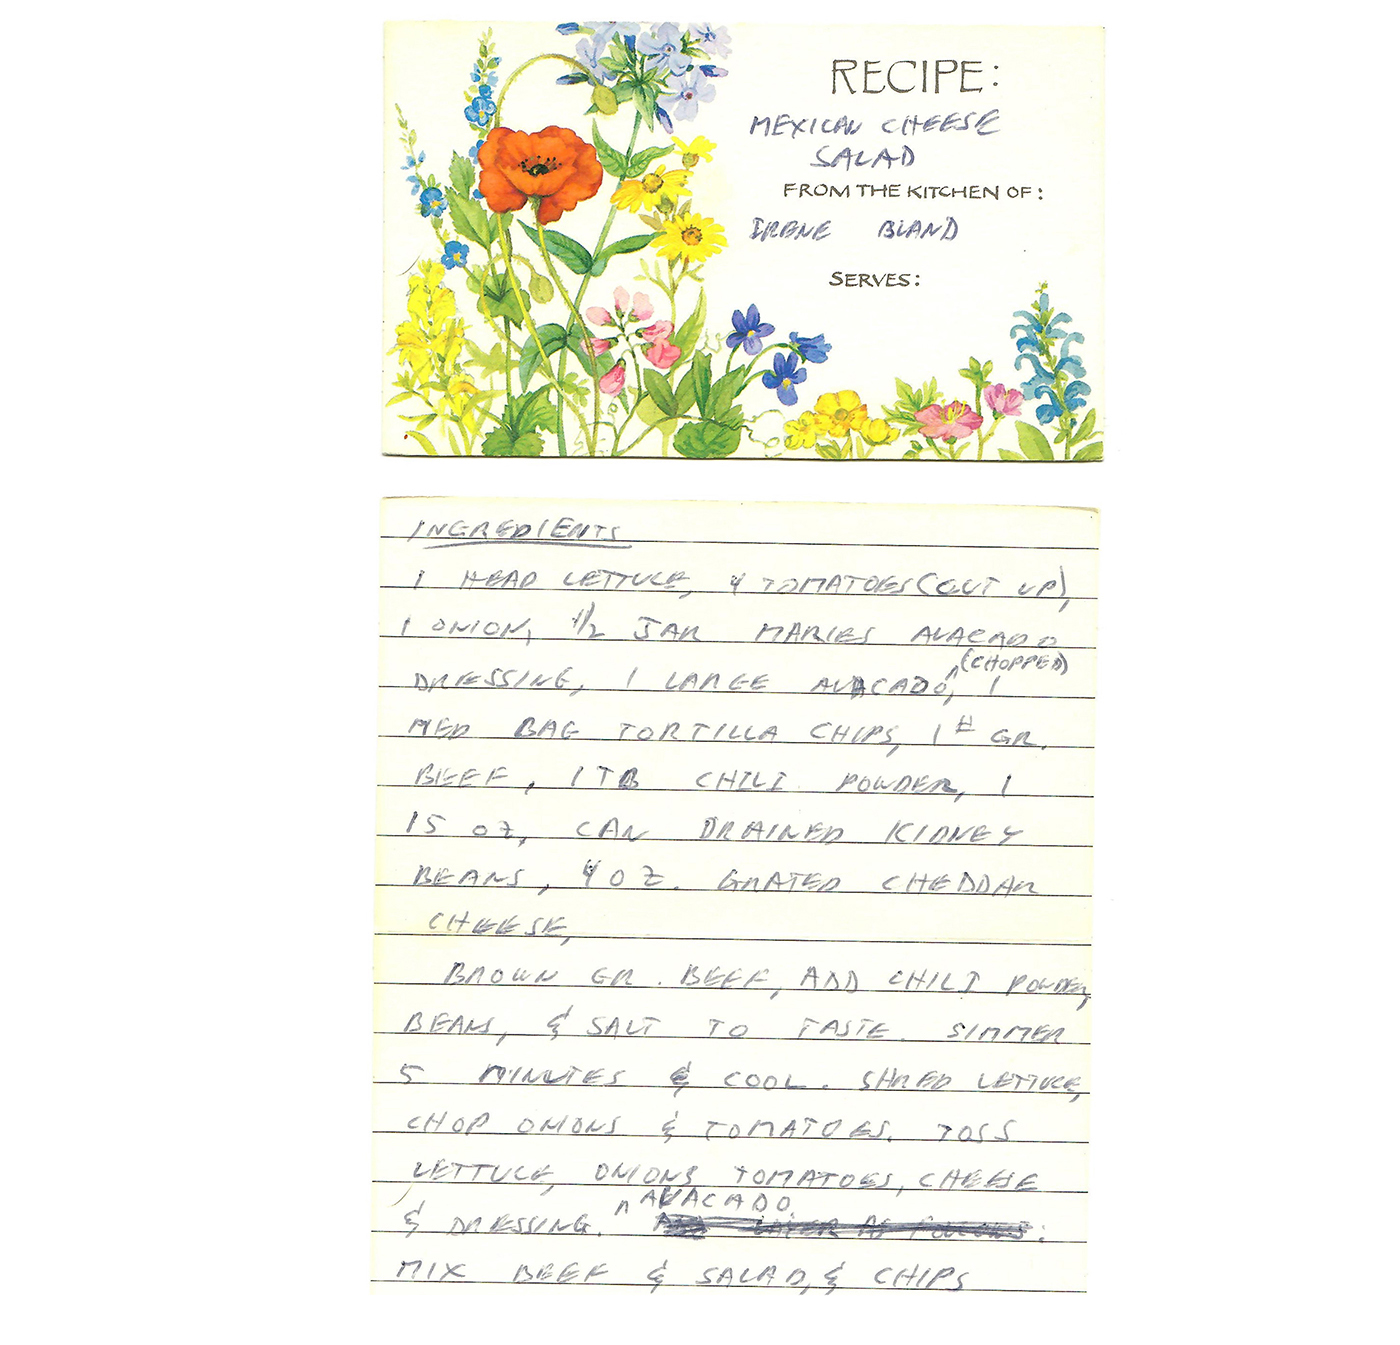 RECIPE:
MEXICAN CHEESE
SALAD
FROM THE KITCHEN OF:
IRENE BLAND
SERVES:
INGREDIENTS
1 HEAD LETTUCE, 4 TOMATOES (CUT UP),
1 ONION, 1/2 JAR MARIES AVACADO
(CHOPPED)
DRESSING, 1 LARGE AVACADO, 1
MED BAG TORTILLA CHIPS, 1 # GR.
BEEF, 1 TB CHILI POWDER, 1
15 OZ, CAN DRAINED KIDNEY
BEANS, 4 OZ. GRATED CHEDDAR
CHEESE,
BROWN GR. BEEF, ADD CHILI POWDER,
BEANS, & SALT TO TASTE. SIMMER
5 MINUTES & COOL. SHRED LETTUCE,
CHOP ONIONS & TOMATOES. TOSS
LETTUCE, ONIONS TOMATOES, CHEESE
AVACADO
& DRESSING. LAYER AS FOLLOWS:
MIX BEEF & SALAD, & CHIPS